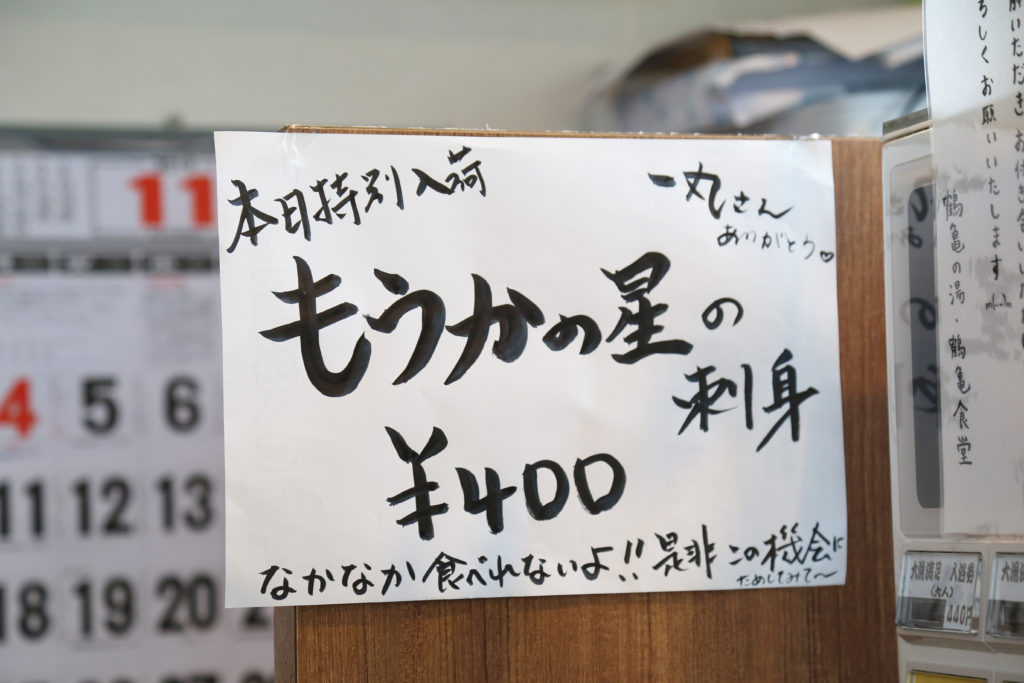 本日特別入荷
一丸さん
ありがとう♡
もうかの星の
刺身
¥400
なかなか食べれないよ!!是非この機会に
ためしてみて〜
11
4 5 6
11 12 13
18 19 20
お付き合いいただき
ろしくお願いいたします
鶴亀の湯・鶴亀食堂
大漁満足 入浴券
(大人)
440円